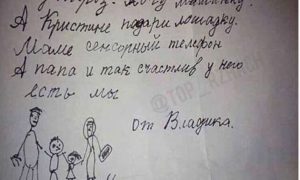 Мороз. Хочу машинку.
А Кристине подари лошадку.
Маме сенсорный телефон
А папа и так счастлив у него
есть мы
От Владика.